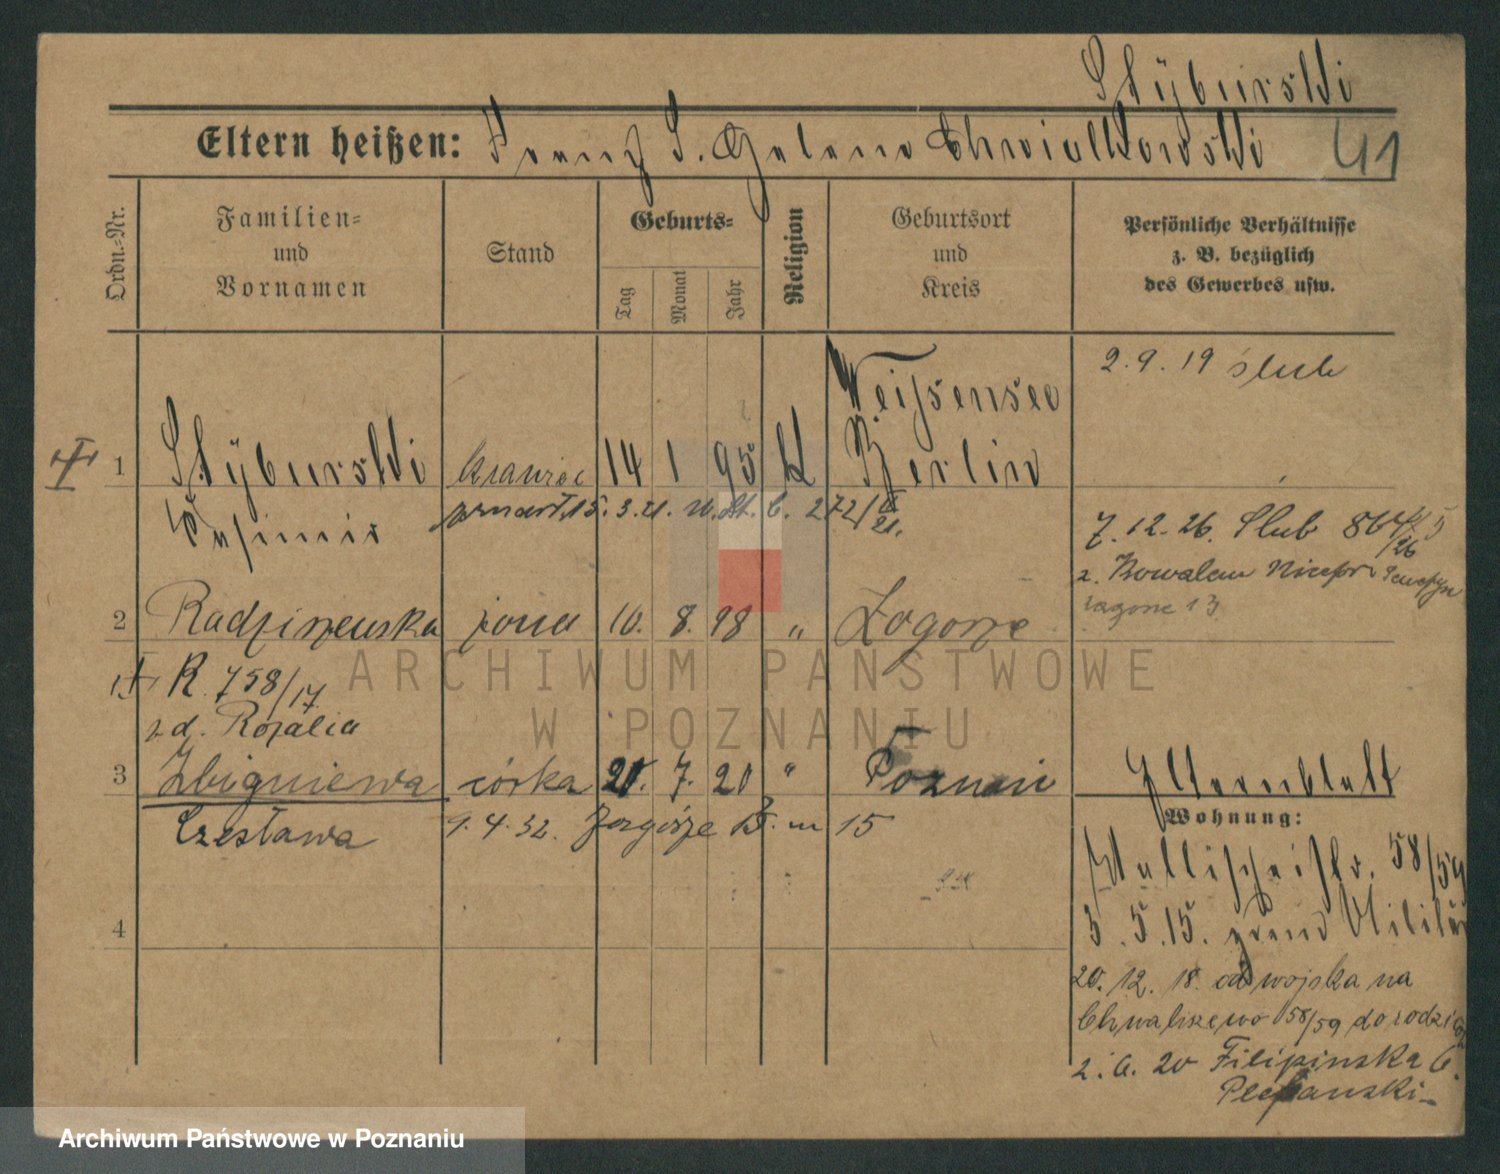 Stÿburski
Eltern heißen: Franz S. Helene Chwialkowski 41
Ordn.-Nr.
Familien- und Vornamen
Stand
Geburts-
Tag
Monat
Jahr
Religion
Geburtsort und Kreis
Persönliche Verhältnisse z. B. bezüglich des Gewerbes usw.
2. 9. 19 ślub
Weißensee
1 Stÿburski krawiec 14 1 95 k Berlin
Casimir zmarł 15. 3. 21. u. St. C. 272/21.
7. 12. 26. Ślub 864/26
z. Kowalem Nicefor
2 Radziszewska żona 10. 8. 98 " Zagorze
R. 758/17
z d. Rozalia
3 Zbigniewa córka 20. 7. 20 " Poznań
Czesława 9. 4. 32. Zagórze 13. m 15
Elternblatt
Wohnung:
Wallischeistr. 58/59
5. 5. 15. Militär
4
20. 12. 18. od wojska na
Chwaliszewo 58/59 do rodziców
2. 6. 20 Filipinska 6.
ARCHIWUM PAŃSTWOWE
W POZNANIU
Archiwum Państwowe w Poznaniu